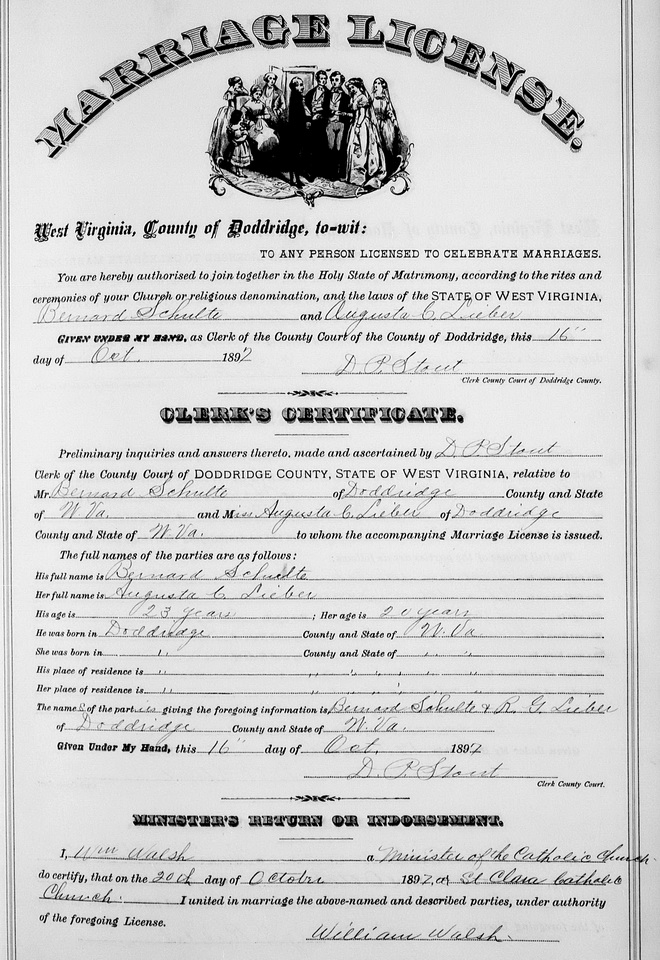 MARRIAGE LICENSE.
West Virginia, County of Doddridge, to-wit:
TO ANY PERSON LICENSED TO CELEBRATE MARRIAGES.
You are hereby authorised to join together in the Holy State of Matrimony, according to the rites and
ceremonies of your Church or religious denomination, and the laws of the STATE OF WEST VIRGINIA,
Bernard Schulte and Augusta C. Lieber
GIVEN UNDER MY HAND, as Clerk of the County Court of the County of Doddridge, this 16"
day of Oct. 1897
D. P. Stout
Clerk County Court of Doddridge County.
CLERK'S CERTIFICATE.
Preliminary inquiries and answers thereto, made and ascertained by D. P. Stout
Clerk of the County Court of DODDRIDGE COUNTY, STATE OF WEST VIRGINIA, relative to
Mr. Bernard Schulte of Doddridge County and State
of W. Va. and Miss Augusta C. Lieber of Doddridge
County and State of W. Va. to whom the accompanying Marriage License is issued.
The full names of the parties are as follows:
His full name is Bernard Schulte
Her full name is Augusta C. Lieber
His age is 23 years ; Her age is 20 years
He was born in Doddridge County and State of W. Va.
She was born in " County and State of " "
His place of residence is " " " " " "
Her place of residence is " " " " "
The names of the parties giving the foregoing information is Bernard Schulte & R. G. Lieber
of Doddridge County and State of W. Va.
Given Under My Hand, this 16" day of Oct. 1897
D. P. Stout
Clerk County Court.
MINISTER'S RETURN OR INDORSEMENT.
I, Wm Walsh a Minister of the Catholic Church
do certify, that on the 20th day of October 1897, at St Clara Catholic
Church. I united in marriage the above-named and described parties, under authority
of the foregoing License.
William Walsh.